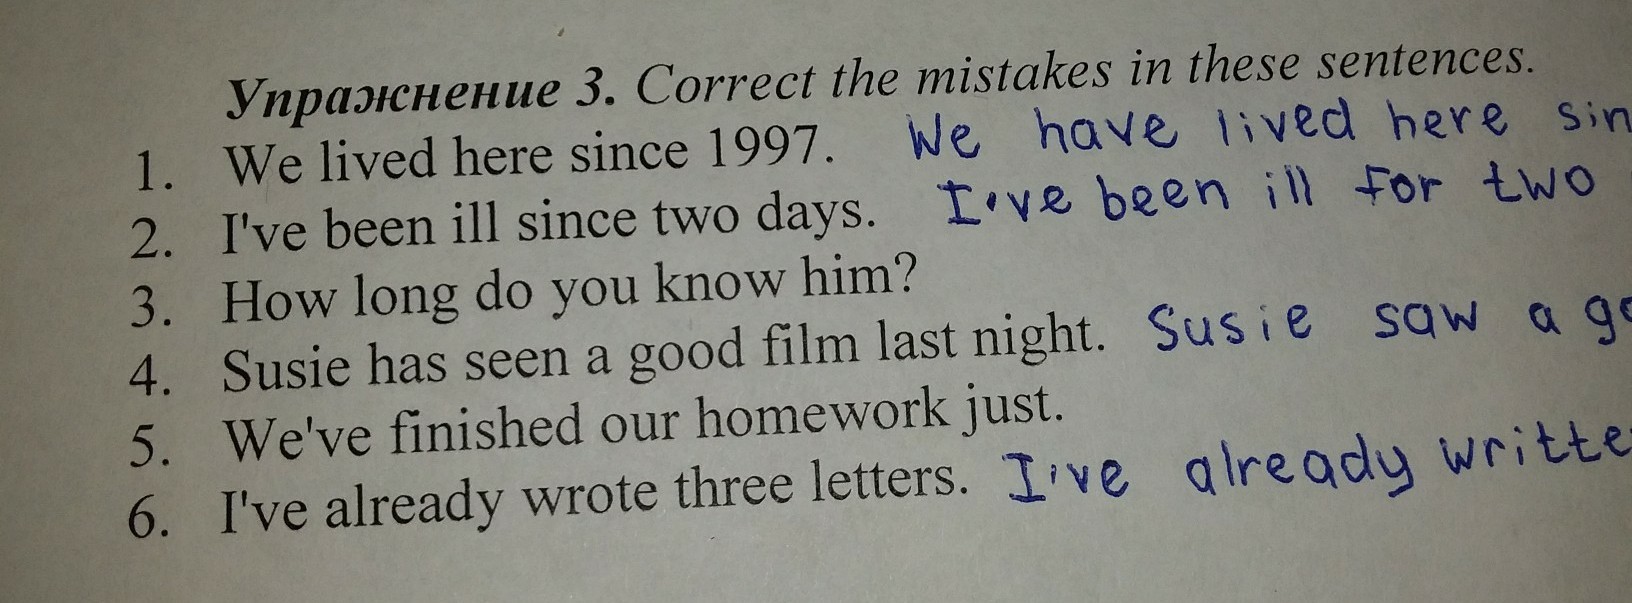 Упражнение 3. Correct the mistakes in these sentences.
1. We lived here since 1997. We have lived here sin
2. I've been ill since two days. I've been ill for two
3. How long do you know him?
4. Susie has seen a good film last night. Susie saw a go
5. We've finished our homework just.
6. I've already wrote three letters. I've already writte